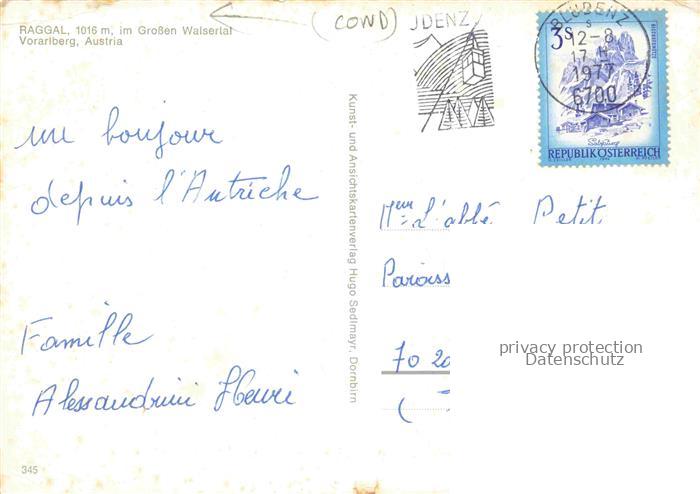 RAGGAL, 1016 m, im Großen Walsertal
Vorarlberg, Austria
(COND)
UDENZ
BLUDENZ
s
12-8
17
1977
6700
3s
REPUBLIK ÖSTERREICH
un bonjour
depuis l'Autriche
Famille
Alessandrini Henri
Kunst- und Ansichtskartenverlag Hugo Sedlmayr, Dornbirn
Mr L'abbé Petit
Paroiss
70 20
(
privacy protection
Datenschutz
345